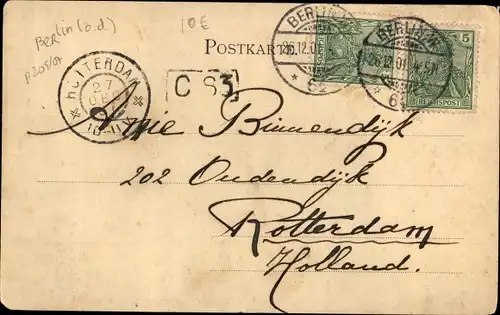 Berlin (o.d)
10€
p205/01
POSTKARTE
BERLIN.W.
26.12.01
* 62
BERLIN.W.
26.12.01 4-5N
* 62
5
REICHSPOST
ROTTERDAM
27
DEC
C S3
Annie Binnendijk
202 Oudendijk
Rotterdam
Holland.